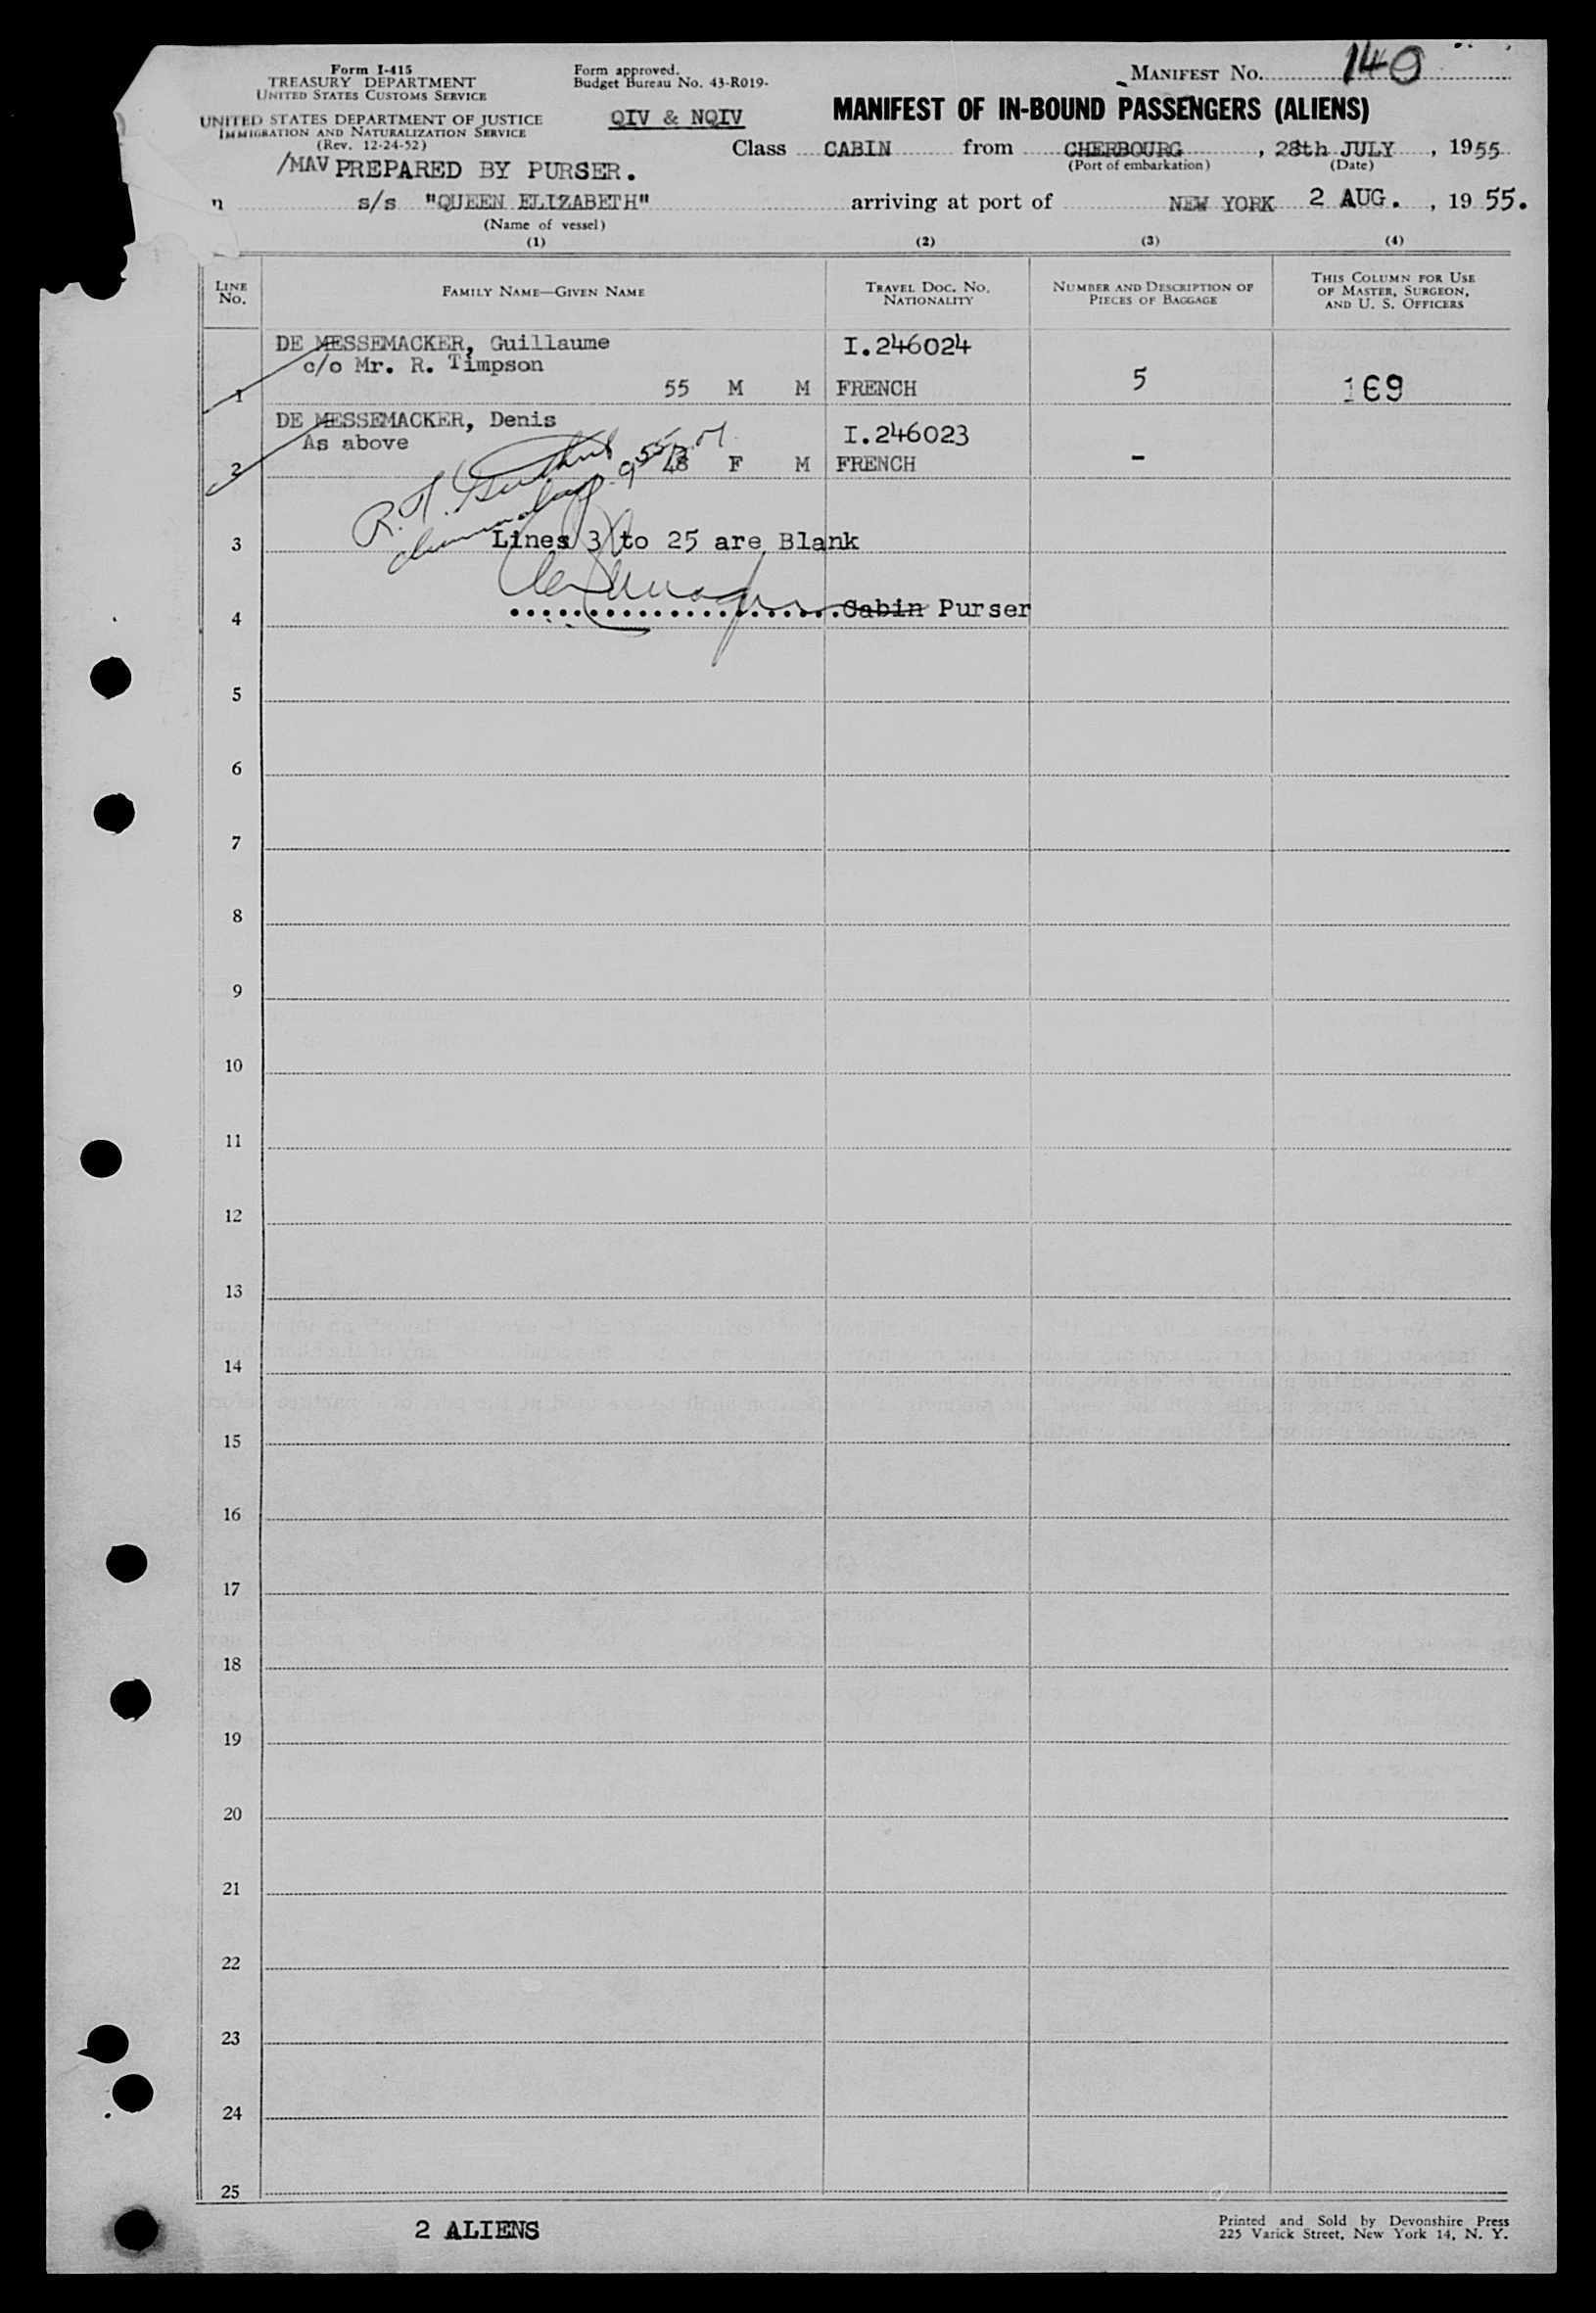 Form I-415
TREASURY DEPARTMENT
UNITED STATES CUSTOMS SERVICE
UNITED STATES DEPARTMENT OF JUSTICE
IMMIGRATION AND NATURALIZATION SERVICE
(Rev. 12-24-52)
/MAV PREPARED BY PURSER.
Form approved.
Budget Bureau No. 43-R019-
QIV & NQIV
MANIFEST NO. 140
MANIFEST OF IN-BOUND PASSENGERS (ALIENS)
Class CABIN from CHERBOURG, 28th JULY, 1955
(Port of embarkation) (Date)
n s/s "QUEEN ELIZABETH" arriving at port of NEW YORK 2 AUG., 19 55.
(Name of vessel)
(1) (2) (3) (4)
LINE NO. FAMILY NAME—GIVEN NAME TRAVEL DOC. NO. NATIONALITY NUMBER AND DESCRIPTION OF PIECES OF BAGGAGE THIS COLUMN FOR USE OF MASTER, SURGEON, AND U. S. OFFICERS
DE MESSEMACKER, Guillaume I.246024
c/o Mr. R. Timpson
1 55 M M FRENCH 5 169
DE MESSEMACKER, Denis I.246023
As above
2 48 F M FRENCH -
R.
3 Lines 3 to 25 are Blank
4 Cabin Purser
5
6
7
8
9
10
11
12
13
14
15
16
17
18
19
20
21
22
23
24
25
2 ALIENS
Printed and Sold by Devonshire Press
225 Varick Street, New York 14, N. Y.